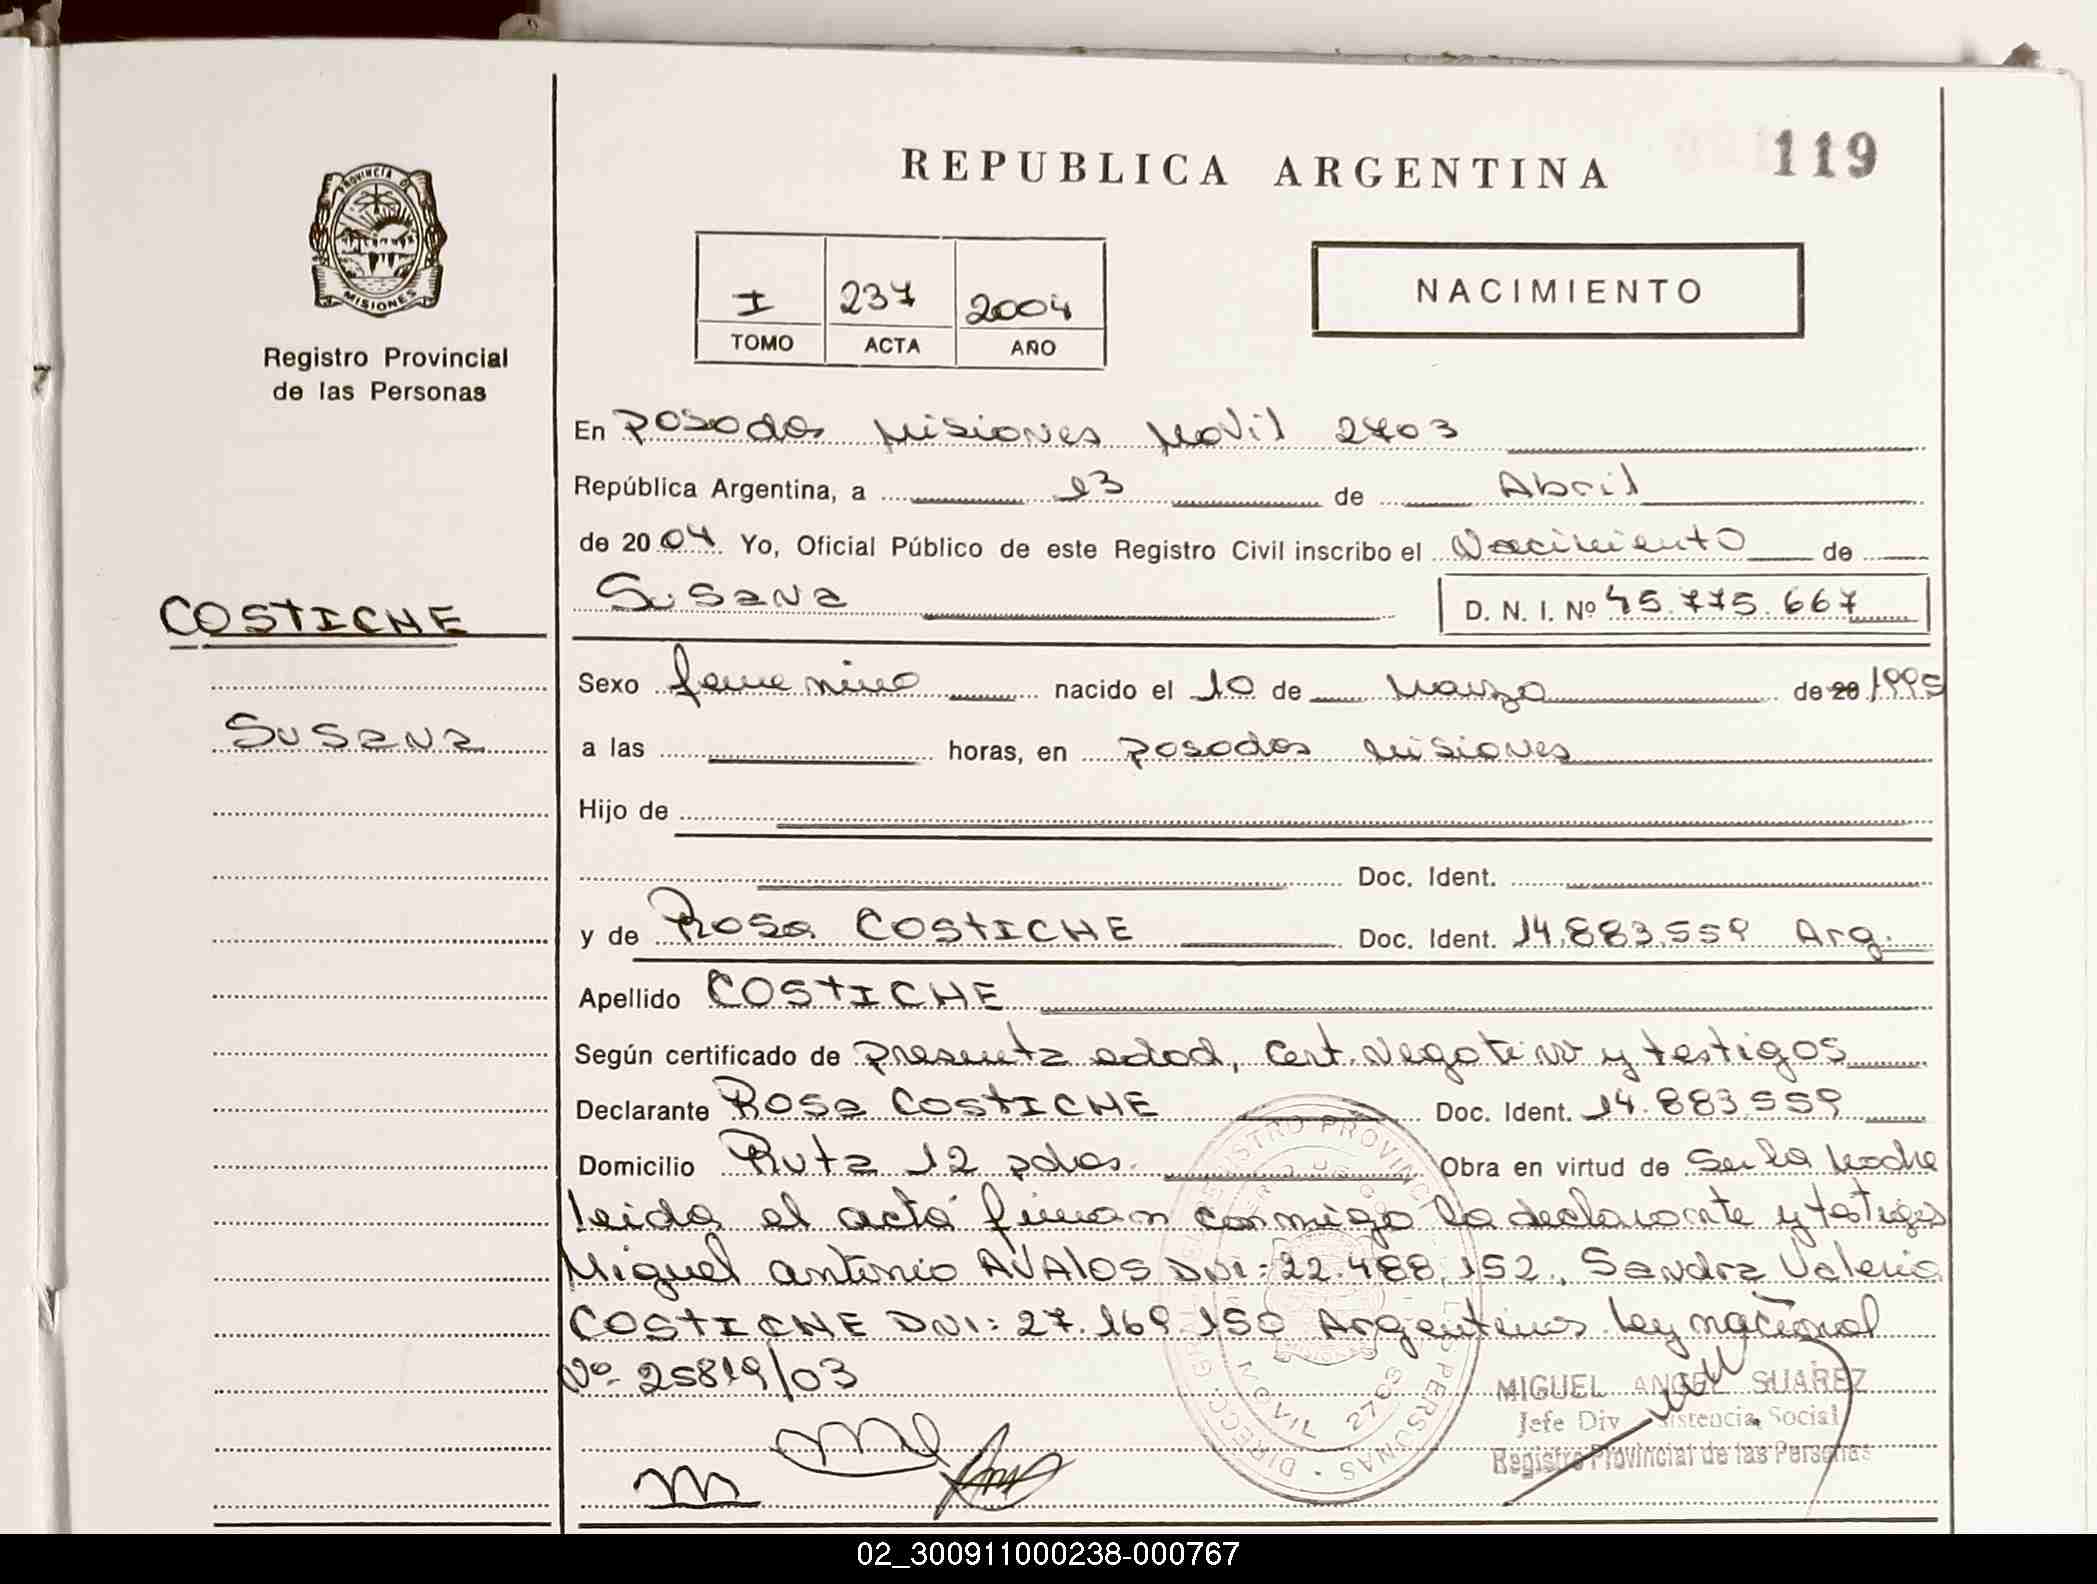 REPUBLICA ARGENTINA
119
PROVINCIA D
MISIONES
Registro Provincial
de las Personas
I 237 2004
TOMO ACTA AÑO
NACIMIENTO
En Posadas Misiones Movil 2703
República Argentina, a 13 de Abril
de 2004 Yo, Oficial Público de este Registro Civil inscribo el Nacimiento de
Susana D. N. I. Nº 45.775.667
COSTICHE
Susana
Sexo femenino nacido el 10 de Marzo de 20 1995
a las horas, en posadas misiones
Hijo de
Doc. Ident.
y de Rosa COSTICHE Doc. Ident. 14.883.559 Arg.
Apellido COSTICHE
Según certificado de presunta edad, cert. Negativo y testigos
Declarante Rosa COSTICHE Doc. Ident. 14.883.559
Domicilio Ruta 12 pdas. Obra en virtud de Ser la Madre
leida el acta firman conmigo la declarante y testigos
Miguel antonio AVALOS DNI: 22.488.152, Sandra Valeria
COSTICHE DNI: 27.169.150 Argentinos ley nacional
Nº 25819/03
MOVIL 2703
MIGUEL ANGEL SUAREZ
Jefe Div. Asistencia Social
Registro Provincial de las Personas
02_300911000238-000767